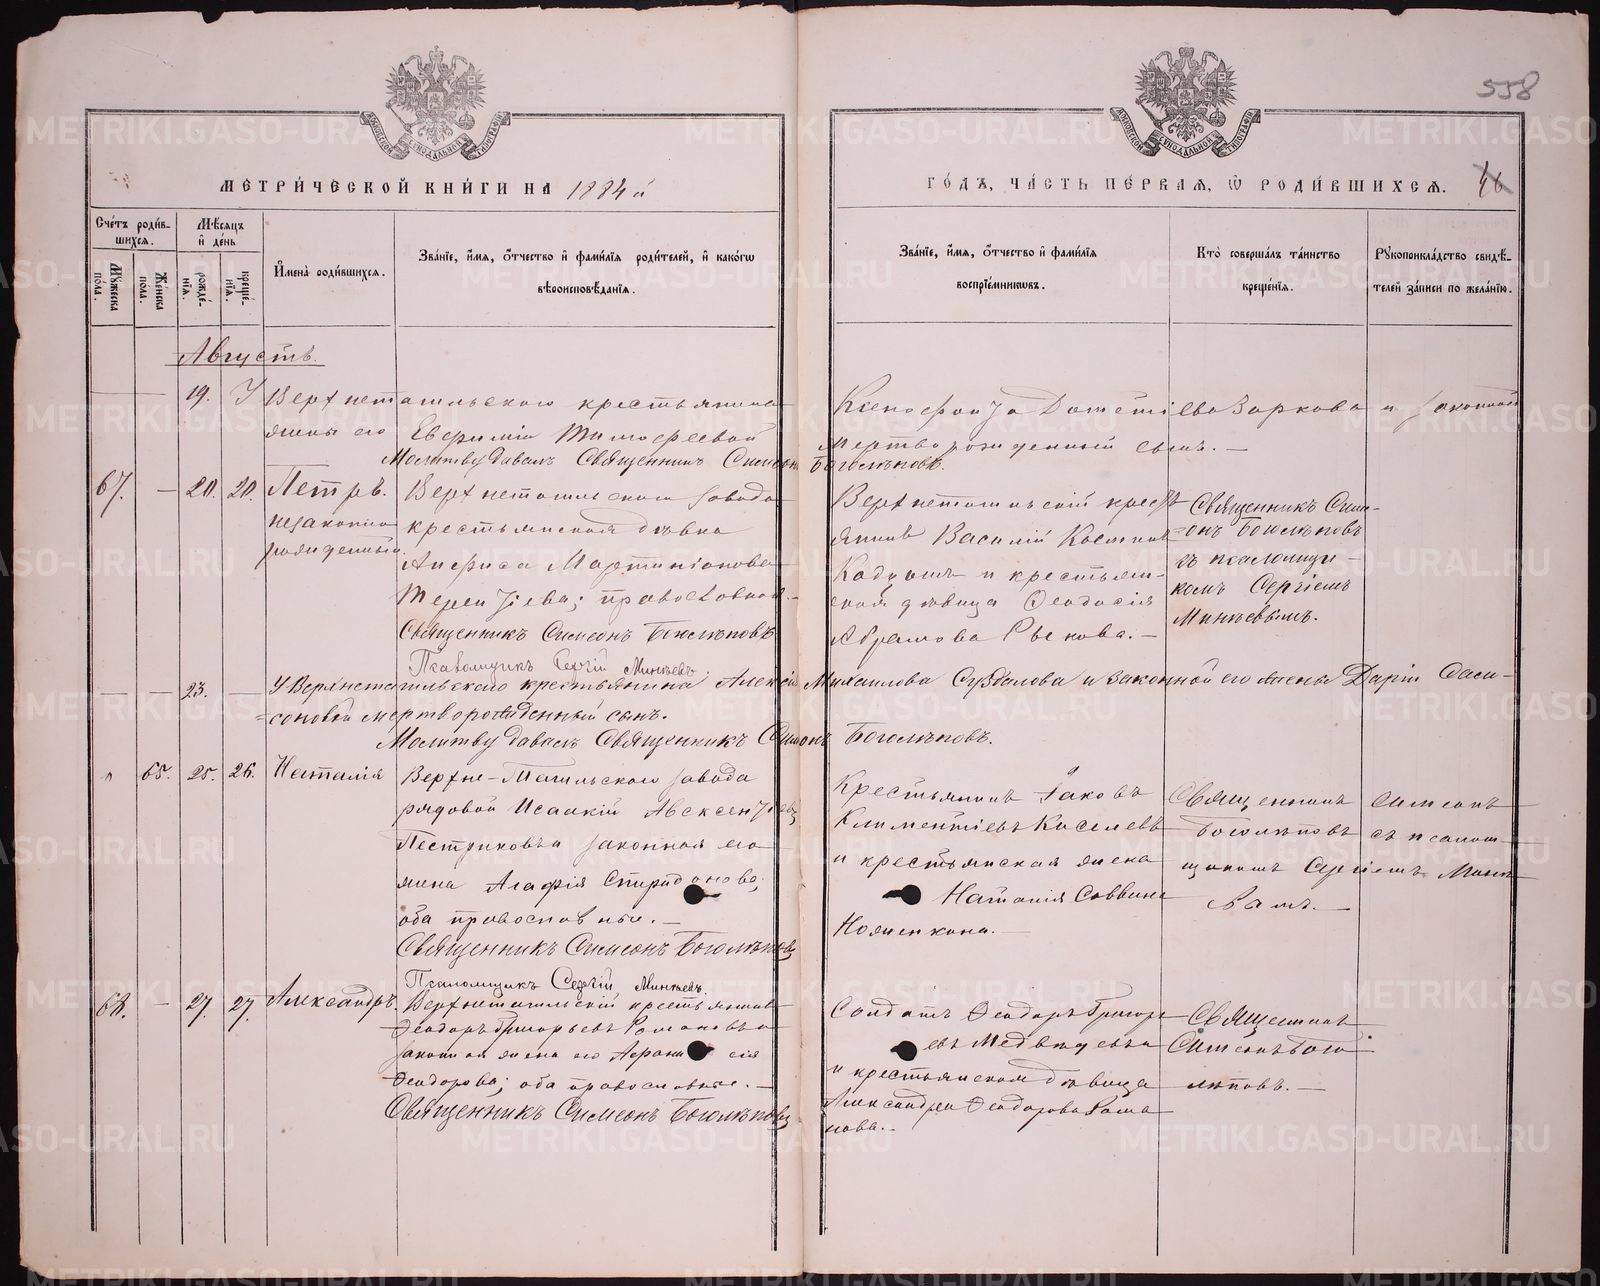 558
МЕТРИЧЕСКОЙ КНИГИ НА 1884й
ГОДЪ, ЧАСТЬ ПЕРВАЯ, Ѡ РОДИВШИХСЯ. 46
Счетъ родив-
шихся.
Мужеска
пола.
Женска
пола.
Мѣсяцъ
и день
рожде-
нія.
креще-
нія.
Имена родившихся.
Званіе, имя, отчество и фамилія родителей, и какогѡ
вѣроисповѣданія.
Званіе, имя, отчество и фамилія
воспріемниковъ.
Кто совершалъ таинство
крещенія.
Рукоприкладство свидѣ-
телей записи по желанію.
Августъ.
19. У Верхнетагильскаго крестьянина Ксенофонта Дометіева Заркова и законной
жены его Евфиміи Тимофеевой мертворожденный сынъ.
Молитву давалъ Священникъ Симеонъ Боголѣповъ.
67. — 20. 20. Петръ.
незаконно
рожденный
Верхнетагильскаго завода
крестьянская дѣвка
Анфиса Мартиніанова
Терентіева; православной.
Священникъ Симеонъ Боголѣповъ
Псаломщикъ Сергій Минѣевъ.
Верхнетагильскій кресть-
янинъ Василій Косминъ
и крестьян-
ская дѣвица Ѳеодосія
Абрамова
Священникъ Симе-
онъ Боголѣповъ
съ псаломщи-
комъ Сергіемъ
Минѣевымъ.
— — 23. — У Верхнетагильскаго крестьянина Алексія Михаилова Суздалова и законной его жены Даріи Саси-
соновой мертворожденный сынъ.
Молитву давалъ Священникъ Симеонъ Боголѣповъ.
" 65. 25. 26. Наталія
Верхне-Тагильскаго завода
рядовой Исаакій Авксентіевъ
Пестриковъ и законная его
жена Агафія Спиридонова;
оба православные.
Священникъ Симеонъ Боголѣповъ
Псаломщикъ Сергій Минѣевъ.
Крестьянинъ Іаковъ
Климентіевъ Киселевъ
и крестьянская жена
Наталія Саввина
Священникъ Симеонъ
Боголѣповъ съ псалом-
щикомъ Сергіемъ Минѣ-
68. — 27. 27. Александръ.
Верхнетагильскій крестьянинъ
Ѳеодоръ Григорьевъ Романовъ и
законная жена его
Ѳеодорова; оба православные.
Священникъ Симеонъ Боголѣповъ
Солдатъ Ѳеодоръ Григорь-
евъ Медвѣдевъ
и крестьянская дѣвица
Александра Ѳеодорова Рома-
нова.
Священникъ
Симеонъ Бого-
лѣповъ.